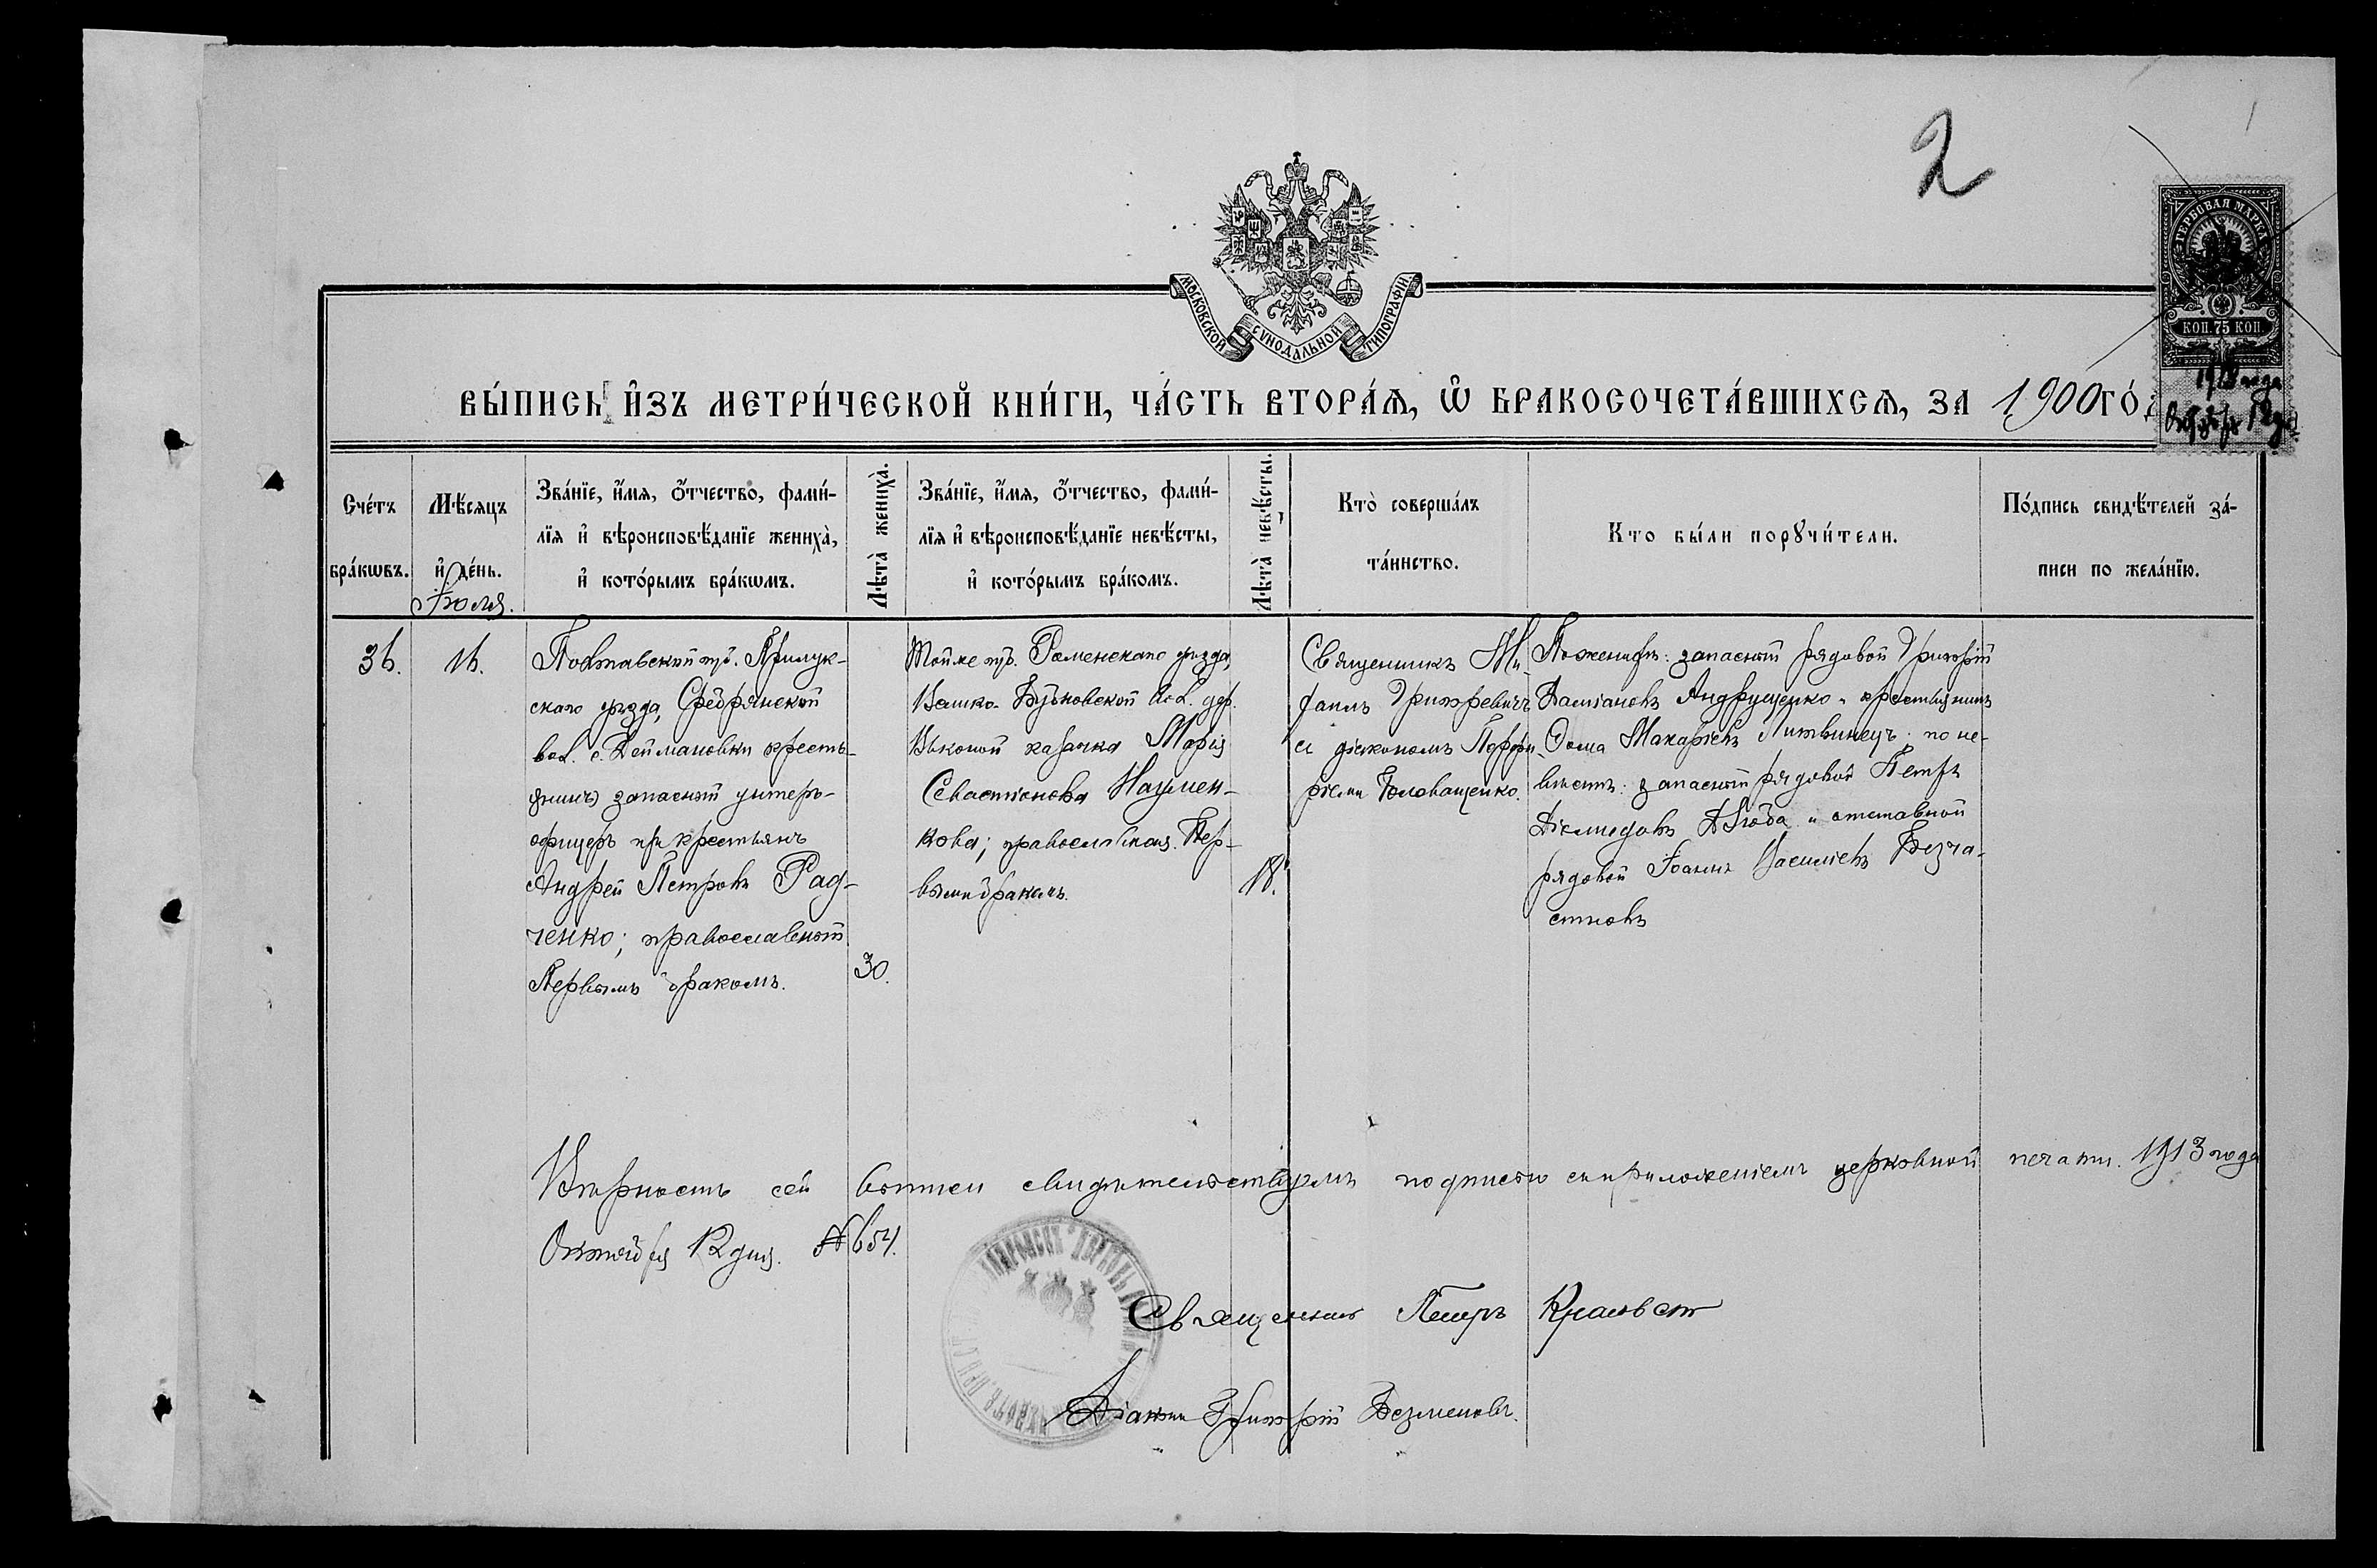 2
ГЕРБОВАЯ МАРКА
КОП. 75 КОП.
МОСКОВСКОЙ СѴНОДАЛЬНОЙ ТИПОГРАФІИ.
ВЫ́ПИСЬ И҆ЗЪ МЕТРИ́ЧЕСКОЙ КНИ́ГИ, ЧА́СТЬ ВТОРА́Ѧ, Ѽ БРАКОСОЧЕТА́ВШИХСѦ, ЗА 1900 ГО́
Сче́тъ
бра́кѡвъ.
Мѣ́сяцъ
и҆ де́нь.
Іюля.
Зва́нїе, и҆́мя, ѻ҆́тчество, фами́-
лїя и҆ вѣроисповѣ́данїе жениха̀,
и҆ кото́рымъ бра́кѡмъ.
Лѣта̀ жениха̀.
Зва́нїе, и҆́мя, ѻ҆́тчество, фами́-
лїя и҆ вѣроисповѣ́данїе невѣ́сты,
и҆ кото́рымъ бра́комъ.
Лѣта̀ невѣ́сты.
Кто̀ соверша́лъ
та́инство.
Кто бы́ли порꙋчи́тели.
По́дпись свидѣ́телей за́-
писи по жела́нїю.
36.
16.
Полтавской губ. Прилук-
скаго уѣзда, Сребрянской
вол. с. Деймановки кресть-
янинъ запасный унтеръ-
офицеръ крестьянъ
Андрей Петровъ Рад-
ченко; православный
Первымъ бракомъ.
30.
Тойже губ. Роменскаго уѣзда,
Бубновской вол. дер.
казачка Марія
Севастіанова Наумен-
кова; православная. Пер-
вымъ бракомъ.
18.
Священникъ Ми-
хаилъ Григорьевичъ
съ діакономъ Порфи-
ріемъ Головащенко.
По женихѣ: запасный рядовой Григорій
Даміановъ Андрущенко и крестьянинъ
Ѳома Макаріевъ Литвинецъ. по не-
вѣстѣ: запасный рядовой Петръ
Діомидовъ и отставной
рядовой Іоаннъ Василіевъ Безча-
стновъ
Вѣрность сей выписи свидѣтельствуемъ подписью съ приложеніемъ церковной печати. 1913 года
Октября 12 дня. № 654.
Священникъ Петръ
Діаконъ Григорій Безменовъ.